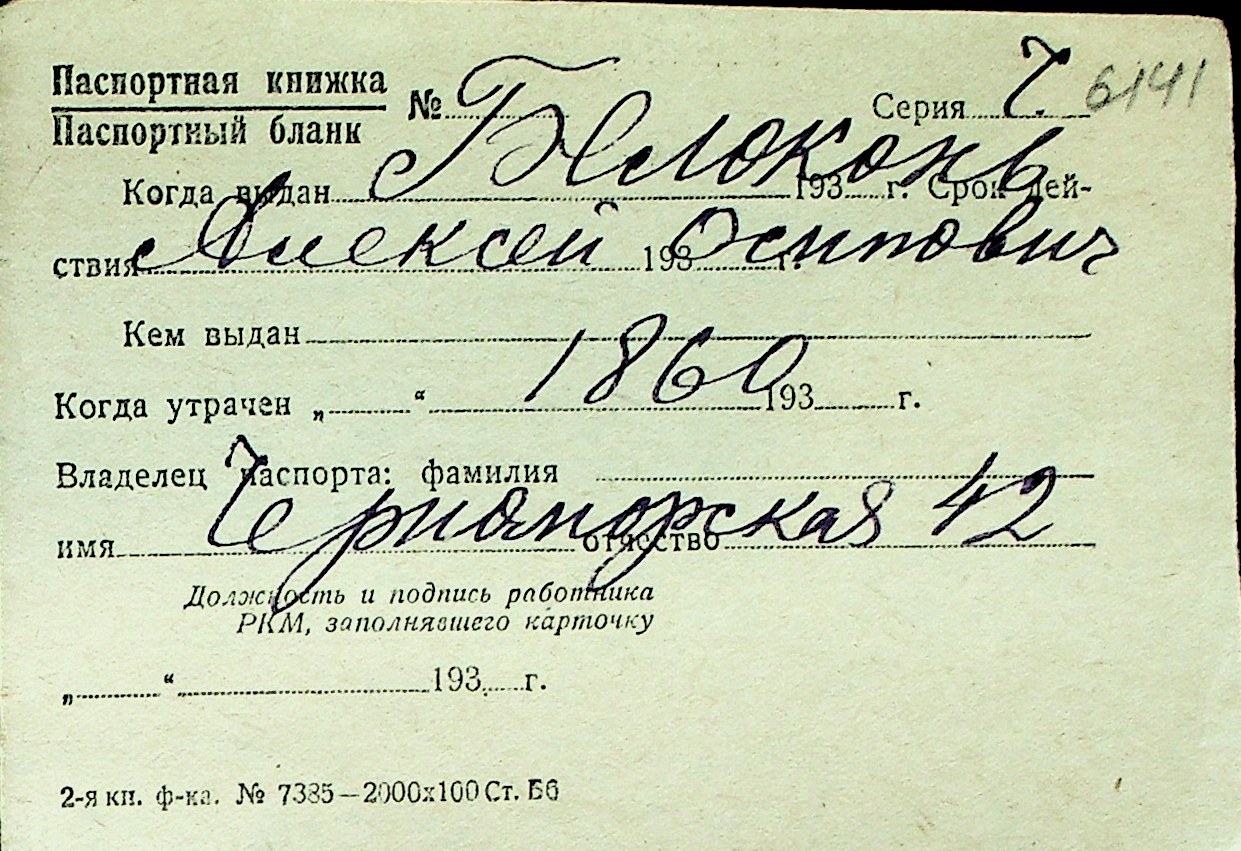 Паспортная книжка
Паспортный бланк
№ Серия 7. 6141
Белоконь
Когда выдан 193 г. Срок дей-
Алексей Осипович
ствия 193 г.
Кем выдан
1860
Когда утрачен „ “ 193 г.
Владелец паспорта: фамилия
Черноморская 42
имя отчество
Должность и подпись работника
РКМ, заполнявшего карточку
„ “ 193 г.
2-я кн. ф-ка. № 7385—2000х100 Ст. Бб